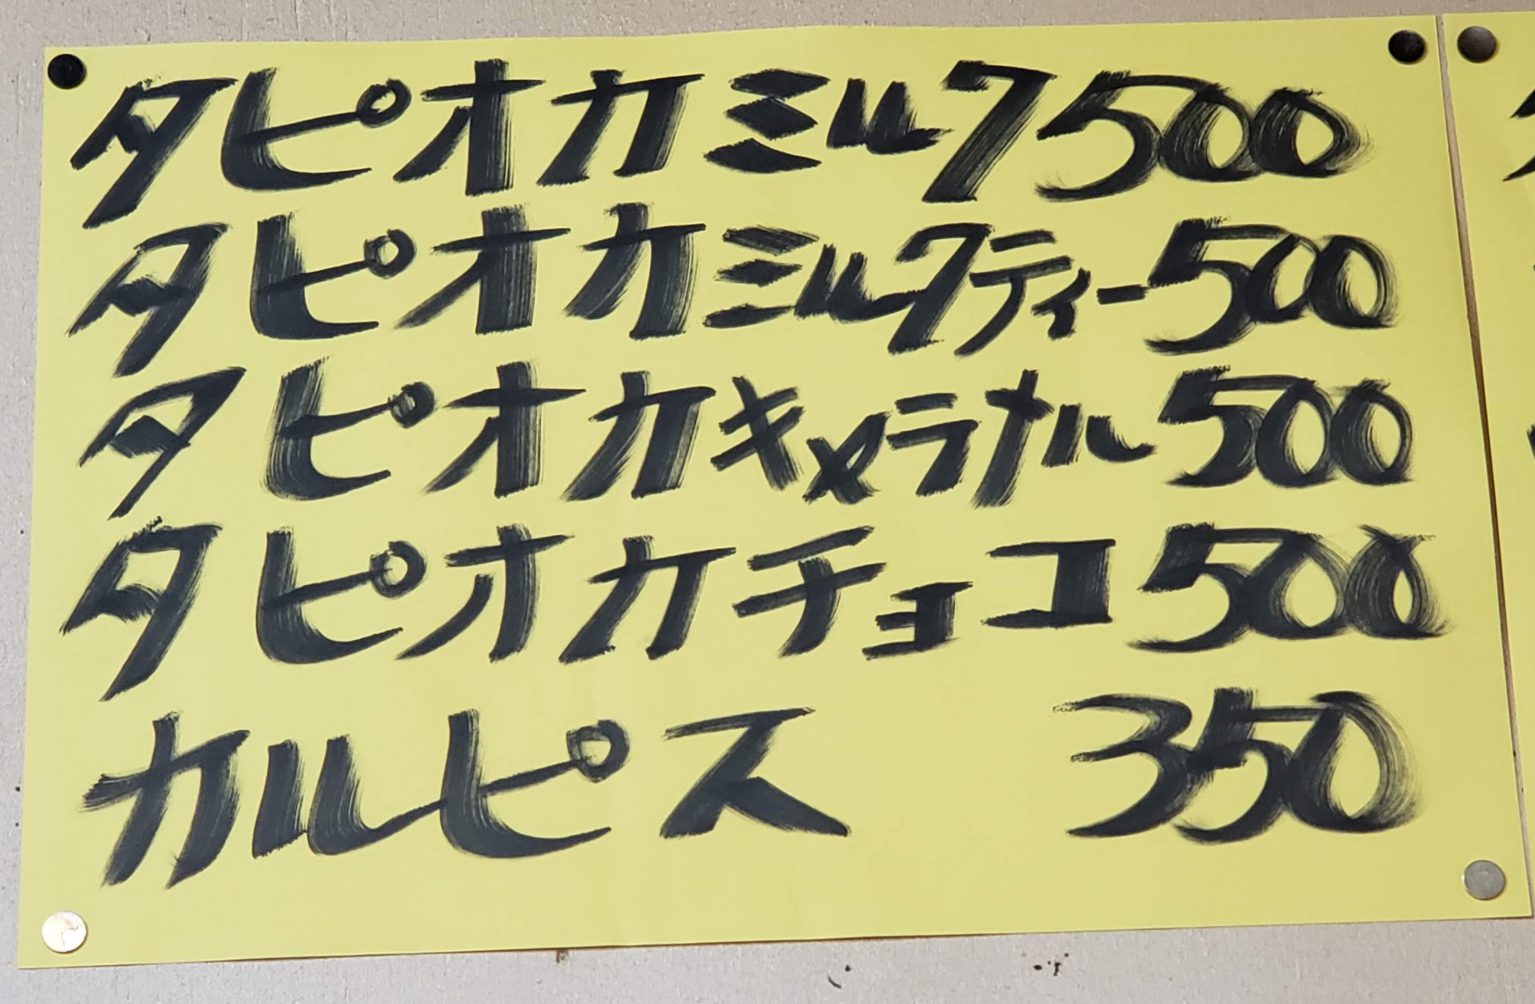 タピオカミルク500
タピオカミルクティー500
タピオカキャラメル500
タピオカチョコ500
カルピス 350